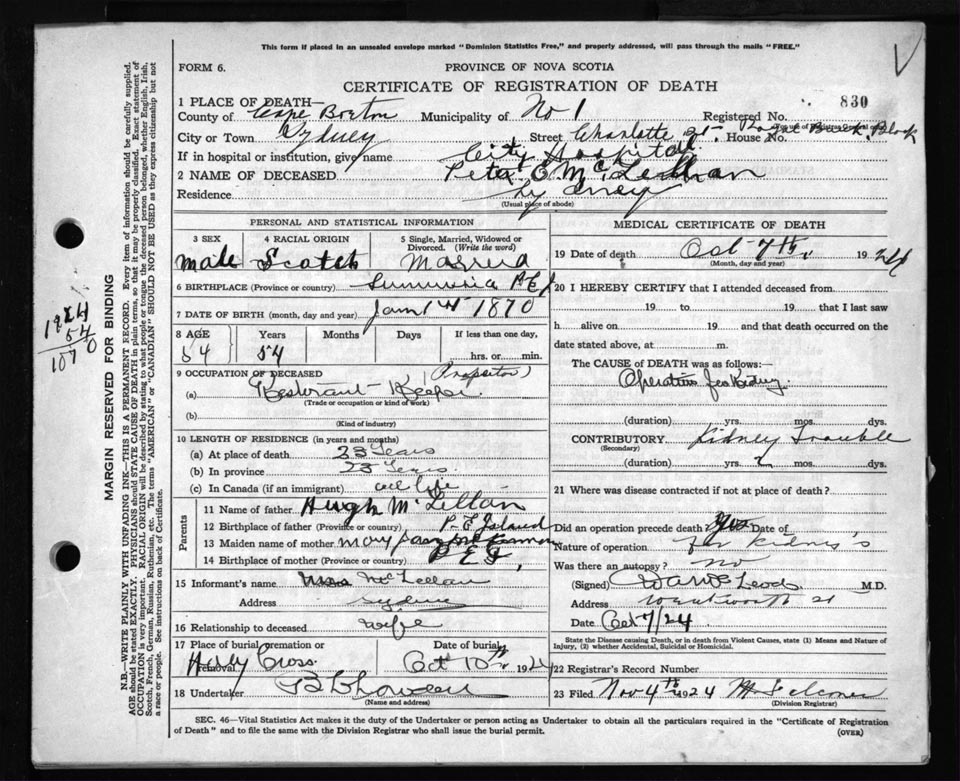 This form if placed in an unsealed envelope marked "Dominion Statistics Free," and properly addressed, will pass through the mails "FREE."
FORM 6.
PROVINCE OF NOVA SCOTIA
CERTIFICATE OF REGISTRATION OF DEATH
830
1 PLACE OF DEATH—
County of Cape Breton Municipality of No 1 Registered No.
City or Town Sydney Street Charlotte St. House No. Block
If in hospital or institution, give name City Hospital
2 NAME OF DECEASED Peter McLellan
Residence Sydney
(Usual place of abode)
PERSONAL AND STATISTICAL INFORMATION
3 SEX
male
4 RACIAL ORIGIN
Scotch
5 Single, Married, Widowed or Divorced. (Write the word)
Married
6 BIRTHPLACE (Province or country) P.E.I
7 DATE OF BIRTH (month, day and year) Jan 1870
8 AGE Years Months Days If less than one day,
54 54 hrs. or min.
9 OCCUPATION OF DECEASED (Propietor)
(a) Restorant Keeper
(Trade or occupation or kind of work)
(b)
(Kind of industry)
10 LENGTH OF RESIDENCE (in years and months)
(a) At place of death 23 Years
(b) In province 23 Years
(c) In Canada (if an immigrant) all life
Parents
11 Name of father Hugh McLellan
12 Birthplace of father (Province or country) P.E. Island
13 Maiden name of mother Mary
14 Birthplace of mother (Province or country) P E I,
15 Informant's name McLellan
Address Sydney
16 Relationship to deceased wife
17 Place of burial, cremation or removal Holy Cross
Date of burial Oct 10th 1924
18 Undertaker
(Name and address)
MEDICAL CERTIFICATE OF DEATH
19 Date of death Oct 7th, 1924
(Month, day and year)
20 I HEREBY CERTIFY that I attended deceased from
19 to 19 that I last saw
h alive on 19 and that death occurred on the
date stated above, at m.
The CAUSE OF DEATH was as follows:—
Operation for Kidney
(duration) yrs. mos. dys.
CONTRIBUTORY Kidney Trouble
(Secondary)
(duration) yrs. 2 mos. dys.
21 Where was disease contracted if not at place of death?
Did an operation precede death? Yes Date of
Nature of operation for Kidney's
Was there an autopsy? no
(Signed) McLeod M.D.
Address Wentworth St
Date Oct 7/24
State the Disease causing Death, or in death from Violent Causes, state (1) Means and Nature of Injury, (2) whether Accidental, Suicidal or Homicidal.
22 Registrar's Record Number
23 Filed Nov 4th 1924
(Division Registrar)
SEC. 46—Vital Statistics Act makes it the duty of the Undertaker or person acting as Undertaker to obtain all the particulars required in the "Certificate of Registration
of Death" and to file the same with the Division Registrar who shall issue the burial permit.
(OVER)
MARGIN RESERVED FOR BINDING
N.B.—WRITE PLAINLY WITH UNFADING INK—THIS IS A PERMANENT RECORD. Every item of information should be carefully supplied.
AGE should be stated EXACTLY. PHYSICIANS should STATE CAUSE OF DEATH in plain terms, so that it may be properly classified. Exact statement of
OCCUPATION is very important. RACIAL ORIGIN will be described by stating to what people or tongue the deceased person belonged, whether English, Irish,
Scotch, French, German, Russian, Ruthenian, etc. The terms "AMERICAN" or "CANADIAN" SHOULD NOT BE USED as they express citizenship but not
a race or people. See instructions on back of Certificate.
1924
54
1870